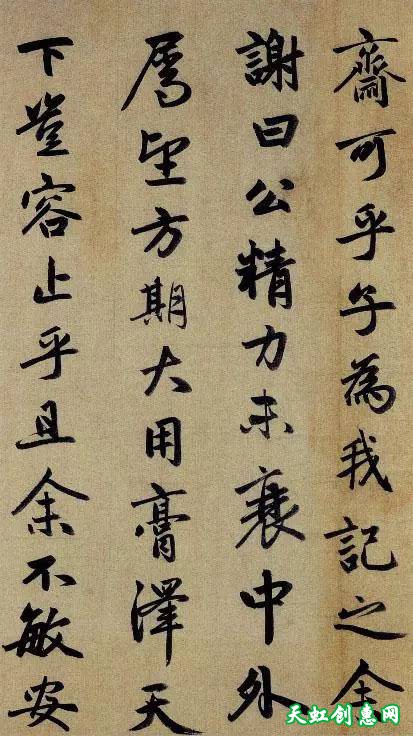 齋可乎子為我記之全
謝曰公精力未衰中外
屬望方期大用膏澤天
下豈容止乎且余不敏安
天虹创惠网